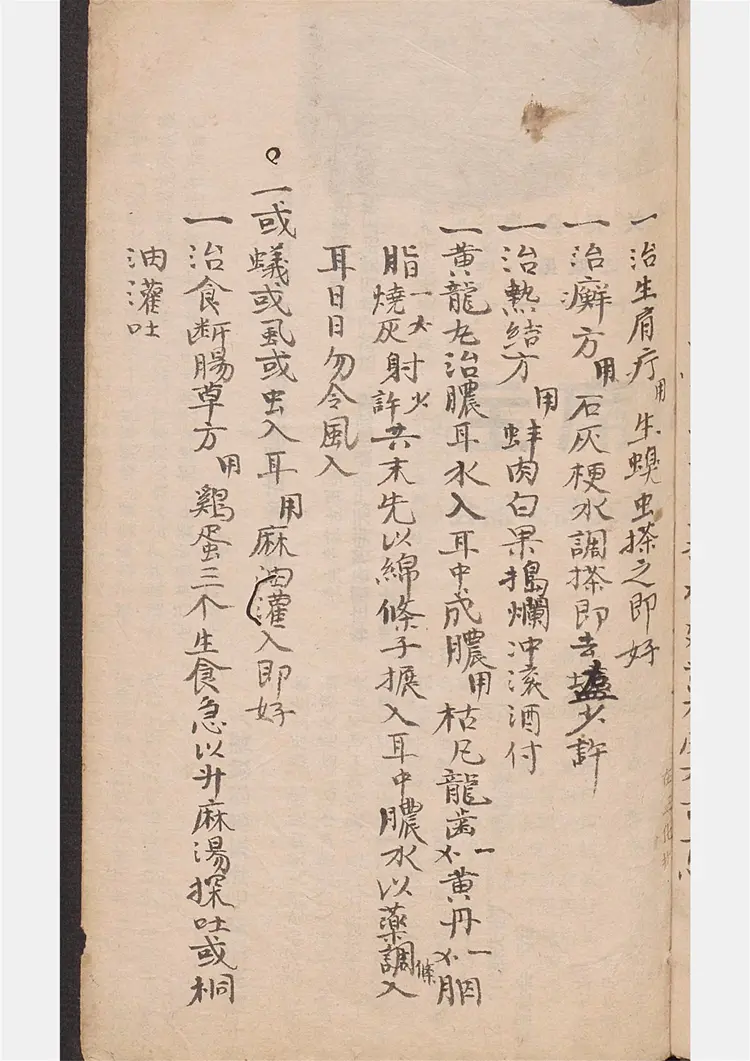 一治生肩疔用生螟虫搽之即好
一治癬方用石灰梗水調搽即去塩少許
一治熱結方用蚌肉白果搗爛冲滚酒付
一黄龍丸治膿耳水入耳中成膿用枯凡龍歯一黄丹一胭
脂一燒灰射少許共末先以綿條子捵入耳中膿水以藥調條入
耳日日勿令風入
一或蟻或虱或虫入耳用麻油灌入即好
一治食断腸草方用鷄蛋三个生食急以升麻湯探吐或桐
油灌吐